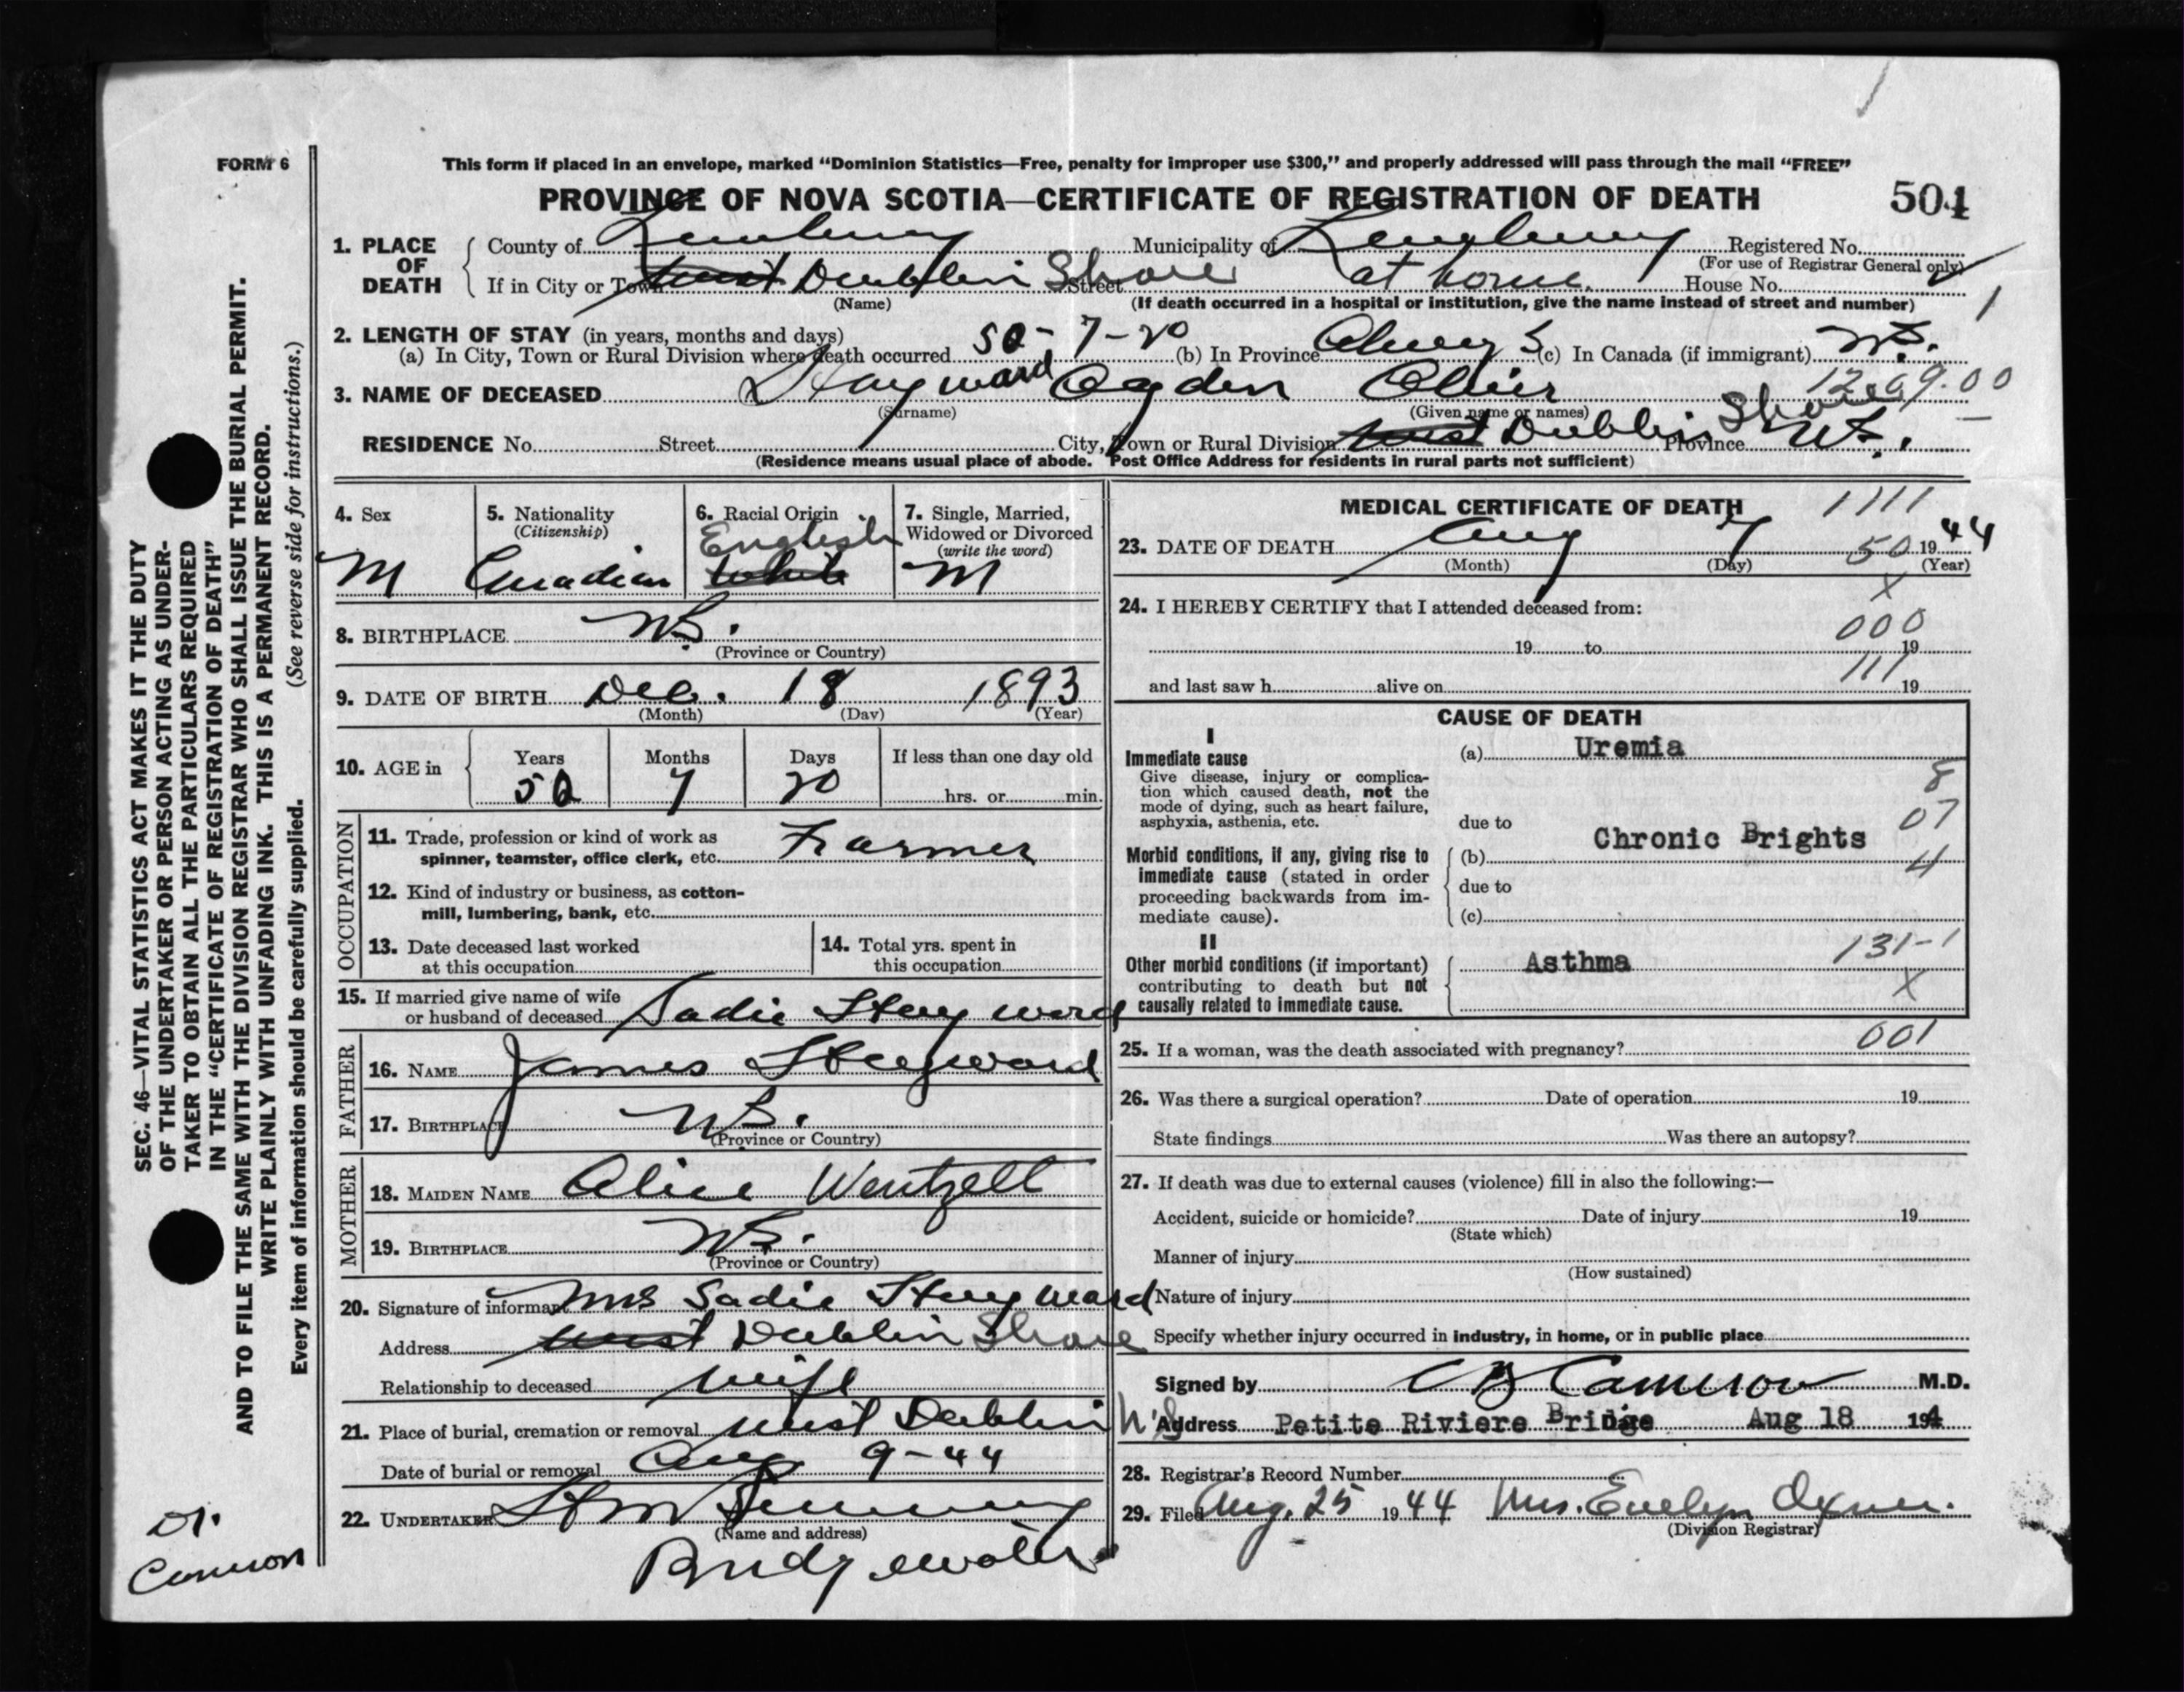 FORM 6
This form if placed in an envelope, marked "Dominion Statistics—Free, penalty for improper use $300," and properly addressed will pass through the mail "FREE"
PROVINCE OF NOVA SCOTIA—CERTIFICATE OF REGISTRATION OF DEATH
504
1. PLACE OF DEATH
County of Lunenburg Municipality of Lunenburg Registered No.
(For use of Registrar General only)
If in City or Town West Dublin Shore Street at home. House No.
(Name) (If death occurred in a hospital or institution, give the name instead of street and number)
1
2. LENGTH OF STAY (in years, months and days)
(a) In City, Town or Rural Division where death occurred 50-7-20 (b) In Province Always (c) In Canada (if immigrant)
3. NAME OF DECEASED Hayward Ogden 1209.00
(Surname) (Given name or names)
RESIDENCE No. Street City, Town or Rural Division West Dublin Shore Province N.S.
(Residence means usual place of abode. Post Office Address for residents in rural parts not sufficient)
4. Sex
M
5. Nationality
(Citizenship)
Canadian
6. Racial Origin
English
White
7. Single, Married,
Widowed or Divorced
(write the word)
M
8. BIRTHPLACE N.S.
(Province or Country)
9. DATE OF BIRTH Dec. 18 1893
(Month) (Day) (Year)
10. AGE in
Years Months Days If less than one day old
50 7 20 hrs. or min.
OCCUPATION
11. Trade, profession or kind of work as
spinner, teamster, office clerk, etc. Farmer
12. Kind of industry or business, as cotton-
mill, lumbering, bank, etc.
13. Date deceased last worked
at this occupation
14. Total yrs. spent in
this occupation
15. If married give name of wife
or husband of deceased Sadie Hayward
FATHER
16. NAME James Hayward
17. BIRTHPLACE N.S.
(Province or Country)
MOTHER
18. MAIDEN NAME Alice Wentzell
19. BIRTHPLACE N.S.
(Province or Country)
20. Signature of informant Mrs Sadie Hayward
Address West Dublin Shore
Relationship to deceased wife
21. Place of burial, cremation or removal West Dublin N.S
Date of burial or removal Aug 9-44
22. UNDERTAKER
(Name and address)
Bridgewater
MEDICAL CERTIFICATE OF DEATH
1111
23. DATE OF DEATH Aug 7 50 1944
(Month) (Day) (Year)
X
24. I HEREBY CERTIFY that I attended deceased from:
000
19 to 19
111
and last saw h alive on 19
CAUSE OF DEATH
I
Immediate cause
Give disease, injury or complica-
tion which caused death, not the
mode of dying, such as heart failure,
asphyxia, asthenia, etc.
(a) Uremia
8
07
4
due to
Morbid conditions, if any, giving rise to
immediate cause (stated in order
proceeding backwards from im-
mediate cause).
(b) Chronic Brights
due to
(c)
II
Other morbid conditions (if important)
contributing to death but not
causally related to immediate cause.
Asthma
131-1
X
25. If a woman, was the death associated with pregnancy? 001
26. Was there a surgical operation? Date of operation 19
State findings Was there an autopsy?
27. If death was due to external causes (violence) fill in also the following:—
Accident, suicide or homicide? Date of injury 19
(State which)
Manner of injury
(How sustained)
Nature of injury
Specify whether injury occurred in industry, in home, or in public place
Signed by Cameron M.D.
Address Petite Riviere Bridge Aug 18 194
28. Registrar's Record Number
29. Filed Aug. 25 1944 Mrs. Evelyn Oxner.
(Division Registrar)
SEC. 46—VITAL STATISTICS ACT MAKES IT THE DUTY
OF THE UNDERTAKER OR PERSON ACTING AS UNDER-
TAKER TO OBTAIN ALL THE PARTICULARS REQUIRED
IN THE "CERTIFICATE OF REGISTRATION OF DEATH"
AND TO FILE THE SAME WITH THE DIVISION REGISTRAR WHO SHALL ISSUE THE BURIAL PERMIT.
WRITE PLAINLY WITH UNFADING INK. THIS IS A PERMANENT RECORD.
Every item of information should be carefully supplied. (See reverse side for instructions.)
Dr.
Cameron